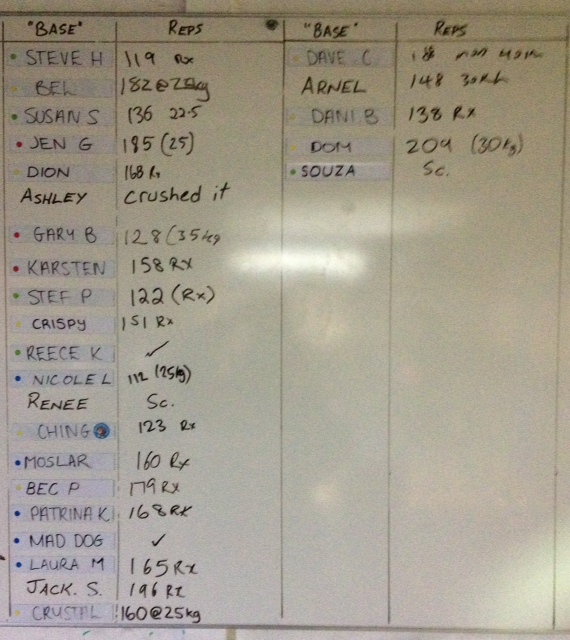 "BASE" REPS
STEVE H 119 Rx
BEL 182@25kg
SUSAN S 136 22.5
JEN G 185 (25)
DION 168 Rx
ASHLEY crushed it
GARY B 128 (35kg
KARSTEN 158 Rx
STEF P 122 (Rx)
CRISPY 151 Rx
REECE K ✓
NICOLE L 112 (25kg)
RENEE Sc.
CHING 123 Rx
MOSLAR 160 Rx
BEC P 179 Rx
PATRINA K 168 Rx
MAD DOG ✓
LAURA M 165 Rx
JACK. S. 196 Rx
CRUSTAL 160@25kg
"BASE" REPS
DAVE C
ARNEL 148
DANI B 138 Rx
DOM 209 (30kg)
SOUZA Sc.